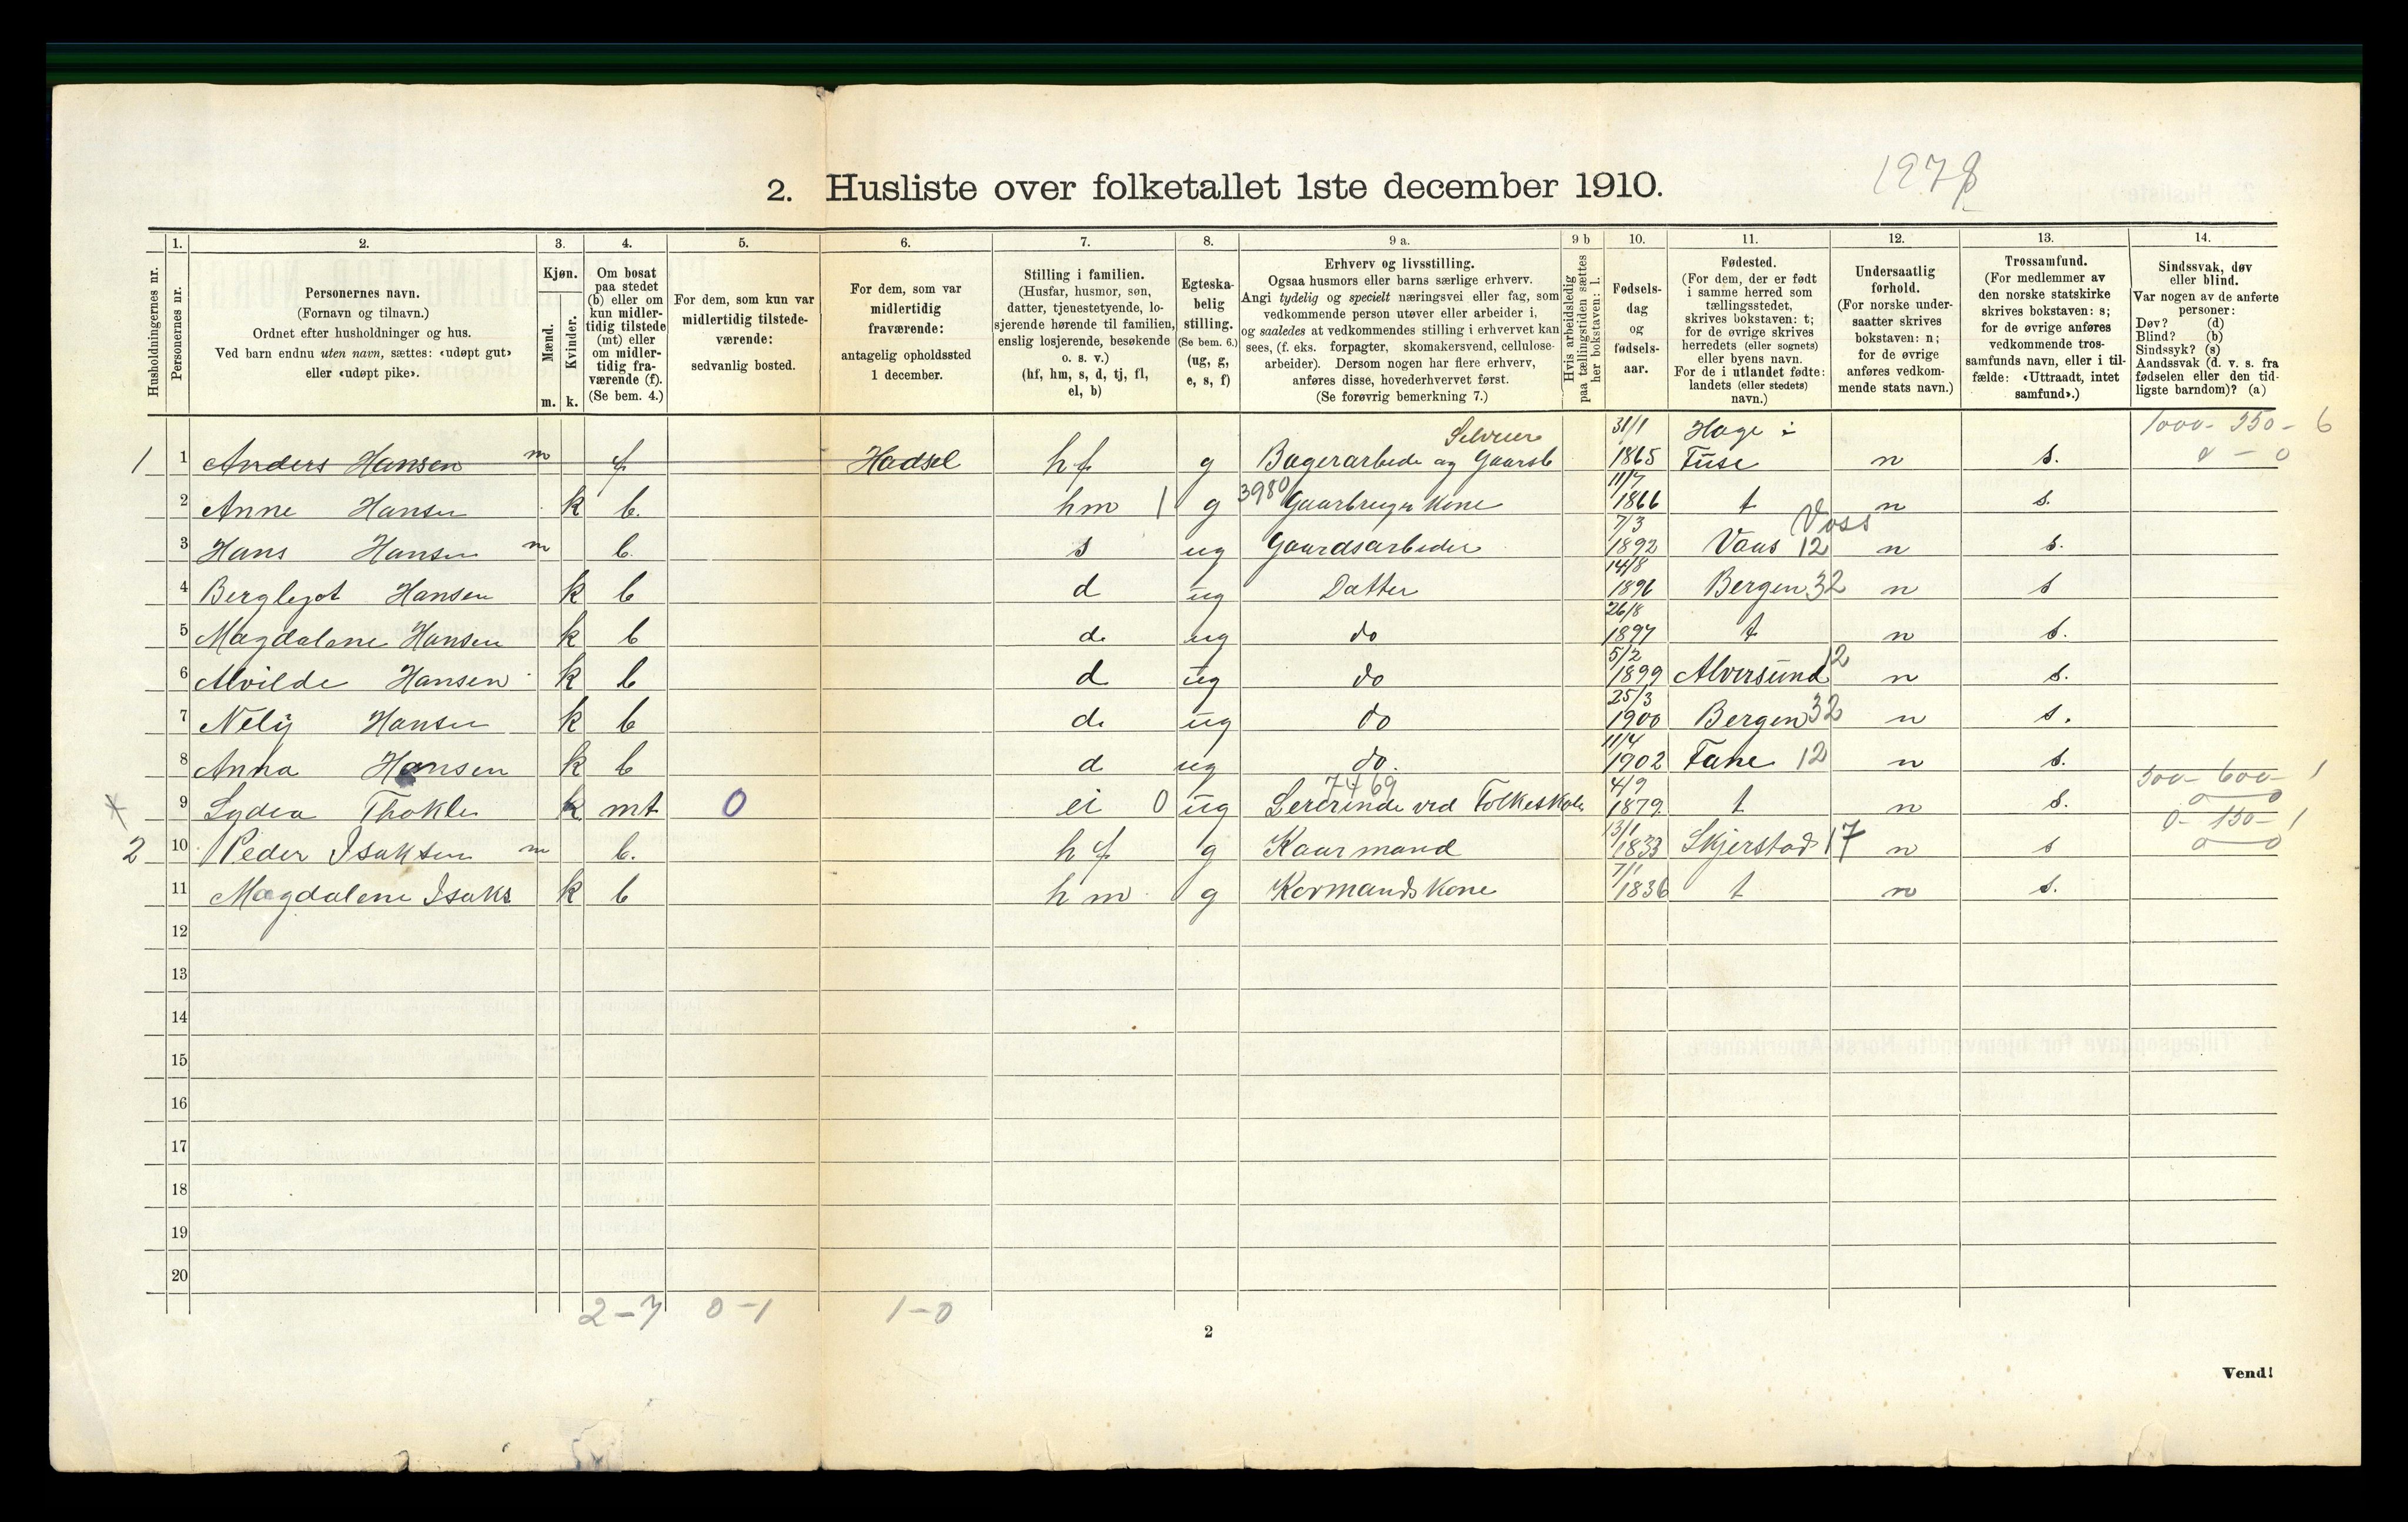 2. Husliste over folketallet 1ste december 1910.
1278
Husholdningernes nr.
1. Personernes nr.
2. Personernes navn.
(Fornavn og tilnavn.)
Ordnet efter husholdninger og hus.
Ved barn endnu uten navn, sættes: «udøpt gut»
eller «udøpt pike».
3. Kjøn.
Mænd. Kvinder.
m. k.
4. Om bosat
paa stedet
(b) eller om
kun midler-
tidig tilstede
(mt) eller
om midler-
tidig fra-
værende (f).
(Se bem. 4.)
5. For dem, som kun var
midlertidig tilstede-
værende:
sedvanlig bosted.
6. For dem, som var
midlertidig
fraværende:
antagelig opholdssted
1 december.
7. Stilling i familien.
(Husfar, husmor, søn,
datter, tjenestetyende, lo-
sjerende hørende til familien,
enslig losjerende, besøkende
o. s. v.)
(hf, hm, s, d, tj, fl,
el, b)
8. Egteska-
belig
stilling.
(Se bem. 6.)
(ug, g,
e, s, f)
9 a. Erhverv og livsstilling.
Ogsaa husmors eller barns særlige erhverv.
Angi tydelig og specielt næringsvei eller fag, som
vedkommende person utøver eller arbeider i,
og saaledes at vedkommendes stilling i erhvervet kan
sees, (f. eks. forpagter, skomakersvend, cellulose-
arbeider). Dersom nogen har flere erhverv,
anføres disse, hovederhvervet først.
(Se forøvrig bemerkning 7.)
9 b Hvis arbeidsledig
paa tællingstiden sættes
her bokstaven: l.
10. Fødsels-
dag
og
fødsels-
aar.
11. Fødested.
(For dem, der er født
i samme herred som
tællingsstedet,
skrives bokstaven: t;
for de øvrige skrives
herredets (eller sognets)
eller byens navn.
For de i utlandet fødte:
landets (eller stedets)
navn.)
12. Undersaatlig
forhold.
(For norske under-
saatter skrives
bokstaven: n;
for de øvrige
anføres vedkom-
mende stats navn.)
13. Trossamfund.
(For medlemmer av
den norske statskirke
skrives bokstaven: s;
for de øvrige anføres
vedkommende tros-
samfunds navn, eller i til-
fælde: «Uttraadt, intet
samfund».)
14. Sindssvak, døv
eller blind.
Var nogen av de anførte
personer:
Døv? (d)
Blind? (b)
Sindssyk? (s)
Aandssvak (d. v. s. fra
fødselen eller den tid-
ligste barndom)? (a)
31/1 Hage i 1000- 350- 6
1 1 Anders Hansen m f Hadsel hf g Bagerarbede og Gaarsb 1865 Fuse n s. 0 - 0
2 Anne Hansen k b. hm 1 g 3980 Gaarbruger Kone 11/7 1866 t n s.
3 Hans Hansen m b. s ug Gaardsarbeder 7/3 1892 Vaas Voss 12 n s.
4 Berglejot Hansen k b d ug Datter 14/8 1896 Bergen 32 n s
5 Magdalene Hansen k b d. ug do 26/8 1897 t n s.
6 Alvilde Hansen k b d ug do 5/2 1899 Alversund 12 n s.
7 Nelly Hansen k b d. ug do 25/3 1900 Bergen 32 n s.
8 Anna Hansen k b d ug do. 11/4 1902 Fane 12 n s.
500- 600- 1
9 Lydea k mt 0 el 0 ug 7469 Lererinde ved Folkeskole 4/9 1879. t n s. 0 0
0- 150- 1
2 10 Peder Isaksen m b. hf g Kaarmand 13/1 1833 Skjerstad 17 n s 0 0
11 Magdalene Isaks k b hm g Kormands Kone 7/1 1836 t n s.
12
13
14
15
16
17
18
19
20
2-7 0-1 1-0
2
Vend!